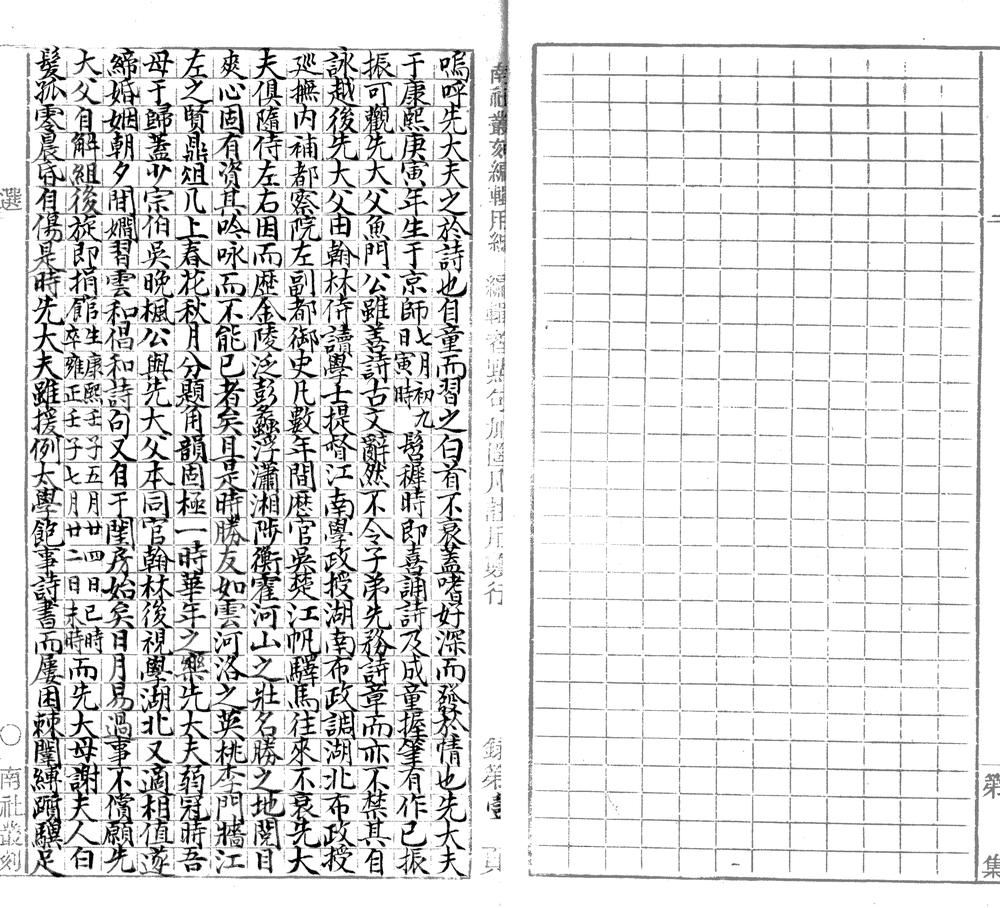 第
集
南社叢刻編輯用紙 編輯者點句加圈用註用發行 錄第壹 頁
嗚呼先大夫之於詩也自童而習之白首不衰蓋嗜好深而發於情也先大夫
于康熙庚寅年生于京師七月初九日寅時髫穉時即喜誦詩及成童握筆有作已振
振可觀先大父魚門公雖善詩古文辭然不令子弟先務詩章而亦不禁其自
詠越後先大父由翰林侍讀學士提督江南學政授湖南布政調湖北布政授
巡撫內補都察院左副都御史凡數年間歷官吳楚江帆驛馬往來不衰先大
夫俱隨侍左右因而歷金陵泛彭蠡浮瀟湘陟衡霍河山之壯名勝之地閱目
爽心固有資其吟咏而不能已者矣且是時勝友如雲河洛之英桃李門牆江
左之賢鼎俎几上春花秋月分題角韻固極一時華年之樂先大夫弱冠時吾
母于歸蓋少宗伯吳晚楓公與先大父本同官翰林後視學湖北又適相值遂
締婚姻朝夕閒嫻習雲和倡和詩句又自于閨房始矣日月易過事不償願先
大父自解組後旋即捐館生康熙壬子五月廿四日巳時卒雍正壬子七月廿二日未時而先大母謝夫人白
髮孤零晨昏自傷是時先大夫雖援例太學飽事詩書而屢困棘闈縛躓驥足
選
○南社叢刻